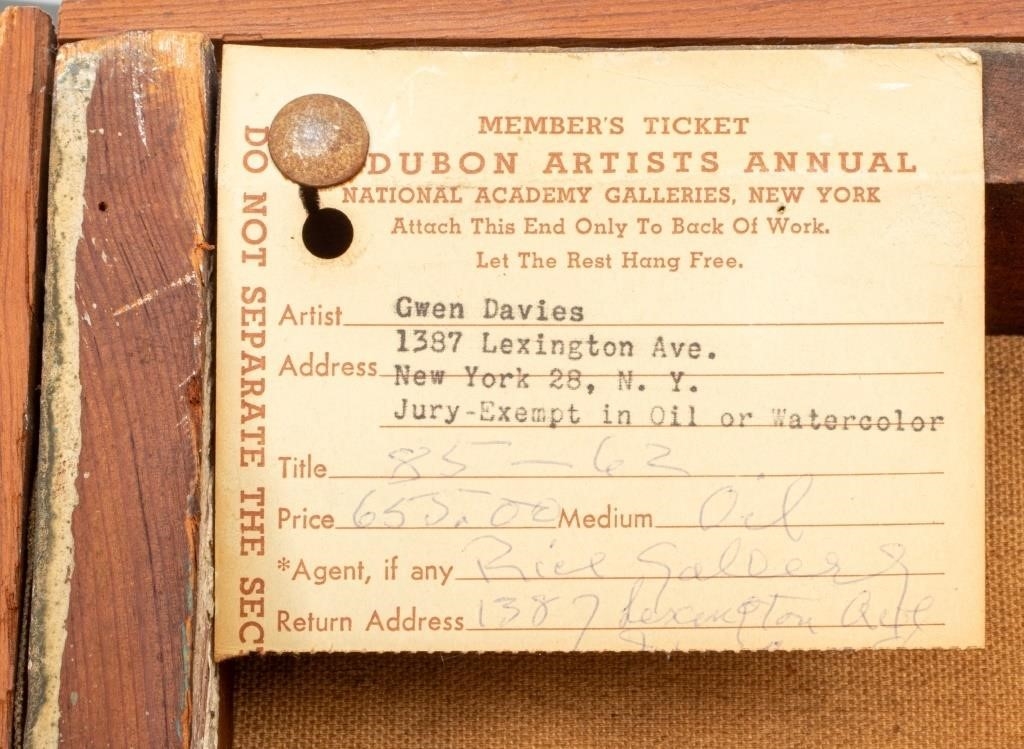 MEMBER'S TICKET
DUBON ARTISTS ANNUAL
NATIONAL ACADEMY GALLERIES, NEW YORK
Attach This End Only To Back Of Work.
Let The Rest Hang Free.
Artist Gwen Davies
1387 Lexington Ave.
Address New York 28, N. Y.
Jury-Exempt in Oil or Watercolor
Title 85-62
Price 655.00 Medium Oil
*Agent, if any
Return Address 1387 Lexington Ave
DO NOT SEPARATE THE SECT